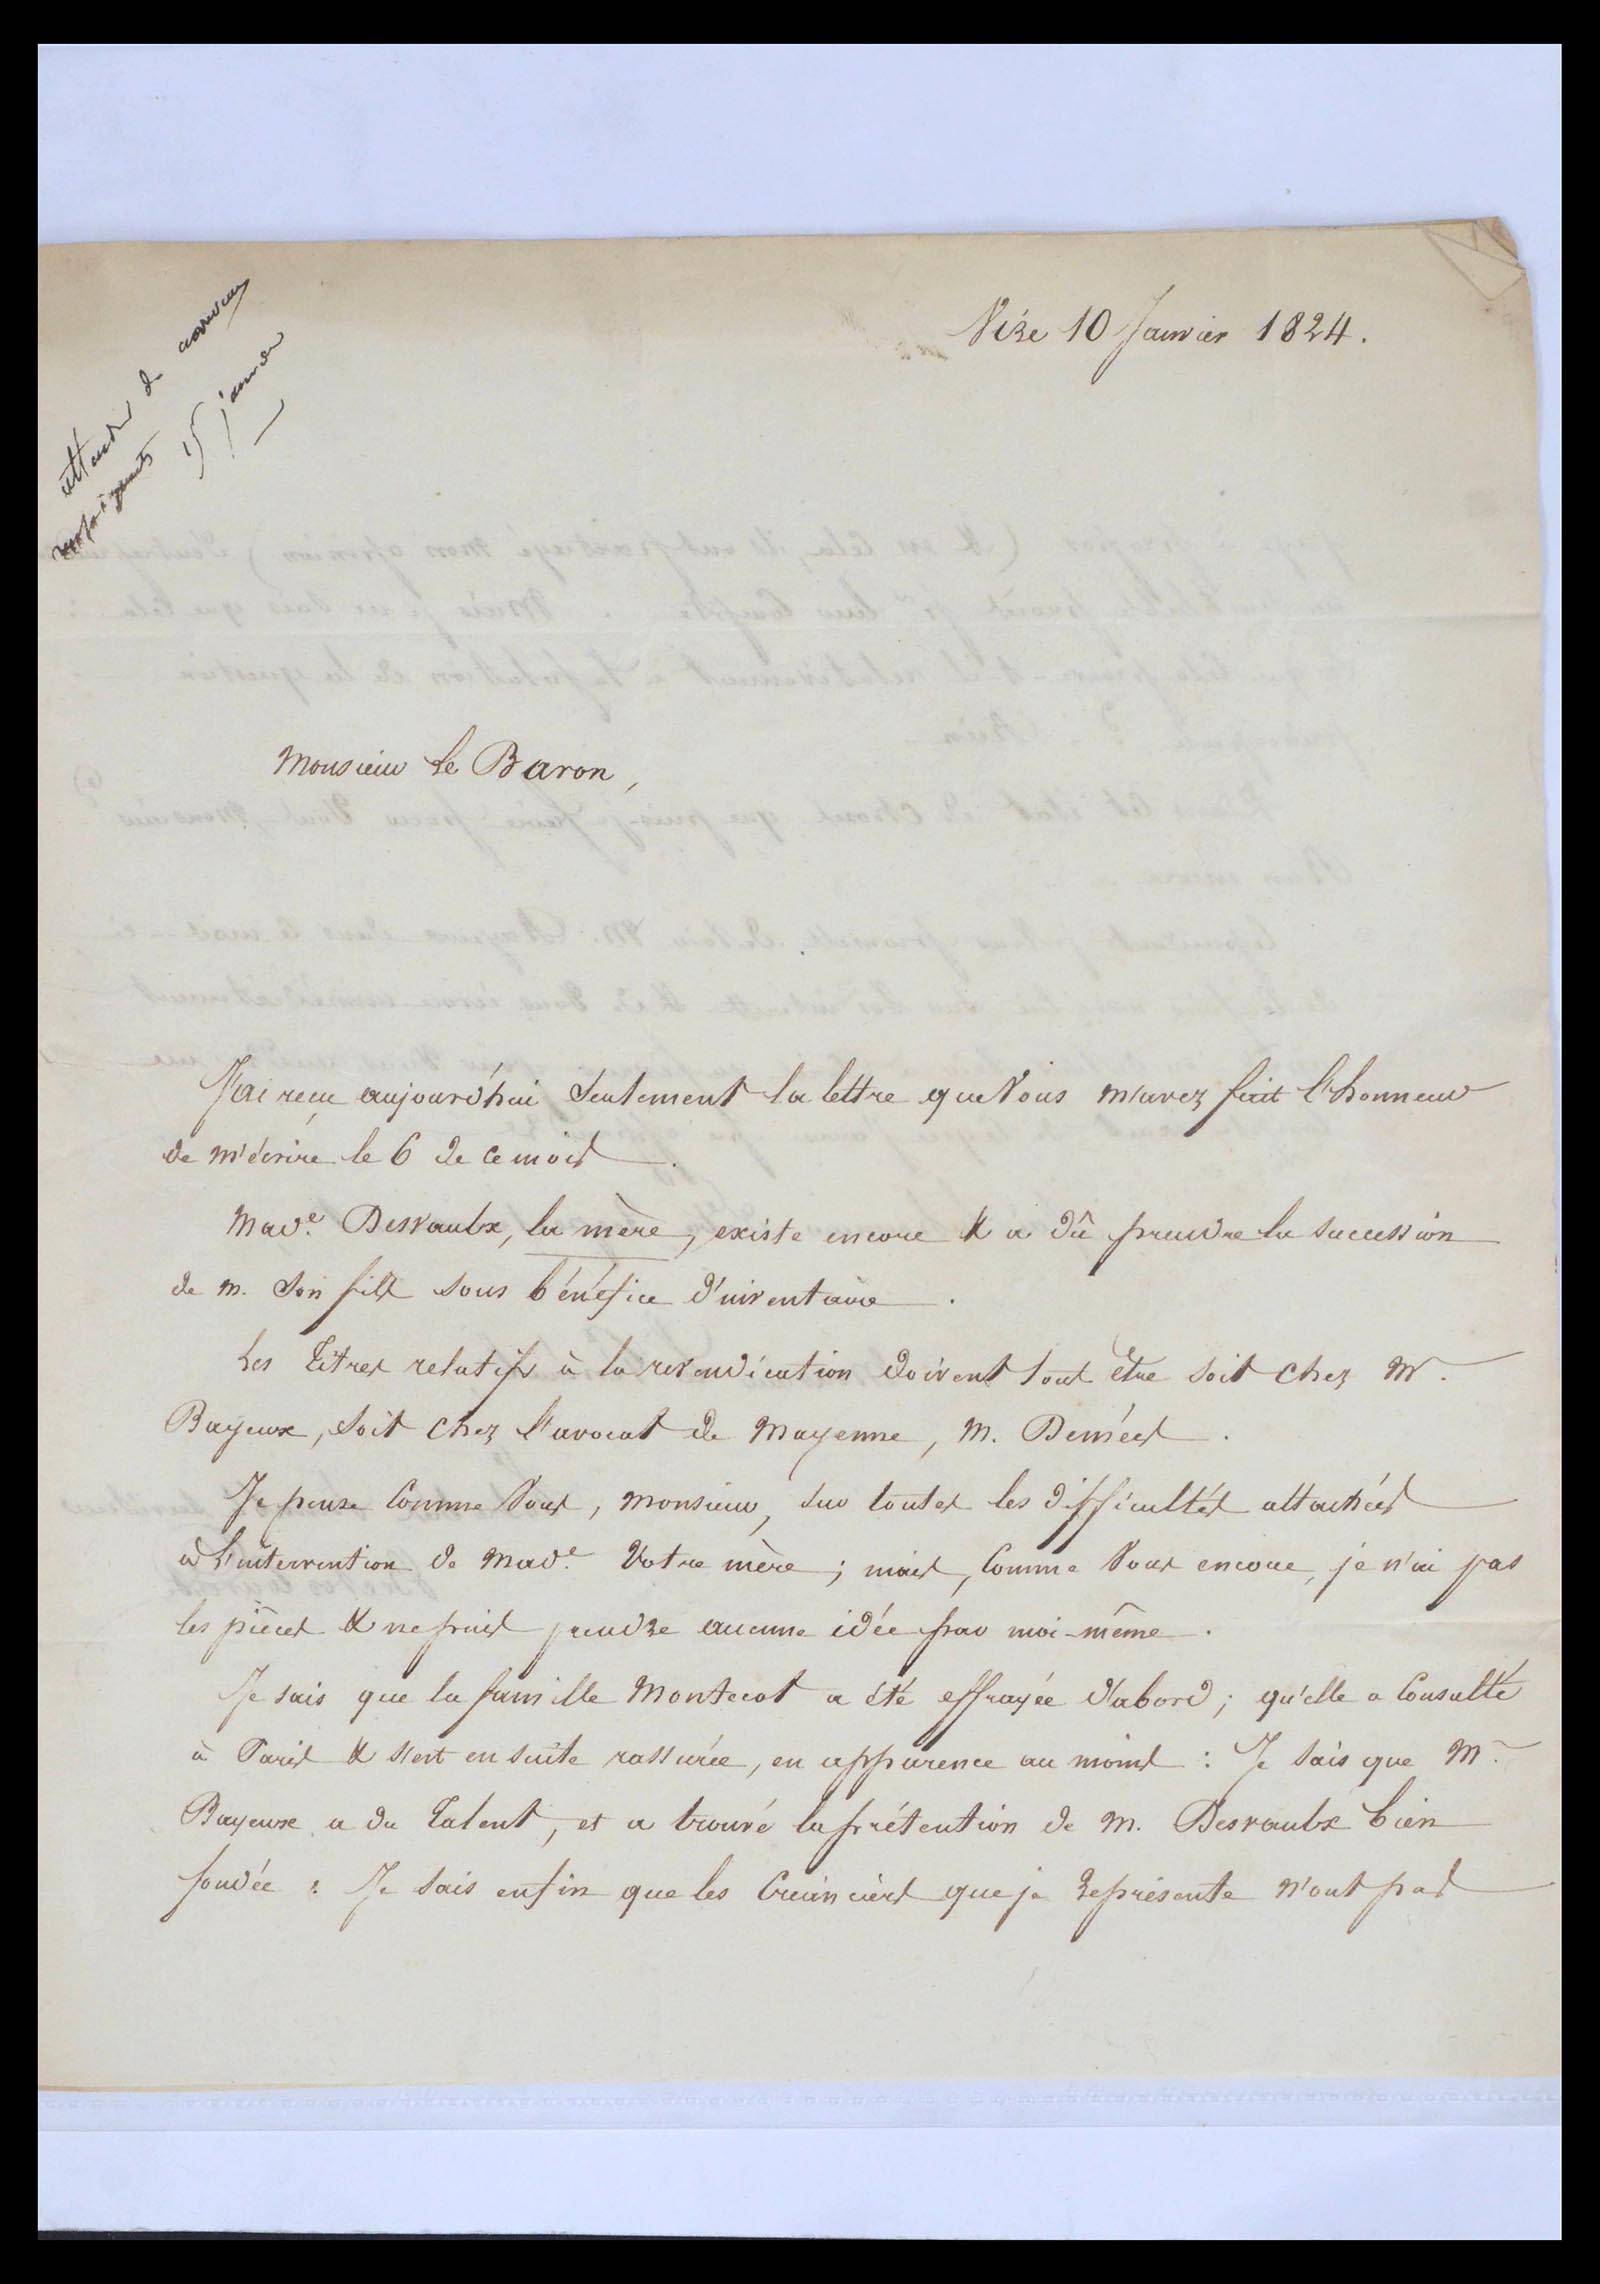 attendre de nouveaux
renseignements 15 janvier
Vire 10 Janvier 1824.
Monsieur le Baron,
J'ai reçu aujourd'hui seulement la lettre que Vous m'avez fait l'honneur
de m'écrire le 6 de ce mois.
Mad.e Desvaulx, la mère, existe encore & a dû prendre la succession
de m. son fils sous bénéfice d'inventaire.
Les Titres relatifs à la revendication doivent tous être soit chez Mr.
Bayeux, soit chez l'avocat de Mayenne, M. Demées.
Je pense comme Vous, monsieur, sur toutes les difficultés attachées
à l'intervention de Mad.e Votre mère ; mais, comme Vous encore, je n'ai pas
les pièces & ne puis prendre aucune idée par moi-même.
Je sais que la famille Montecot a été effrayée d'abord ; qu'elle a consulté
à Paris & s'est en suite rassurée, en apparence au moins : Je sais que Mr.
Bayeux a du talent, et a trouvé la prétention de M. Desvaulx bien
fondée : Je sais enfin que les Créanciers que je représente n'ont pas